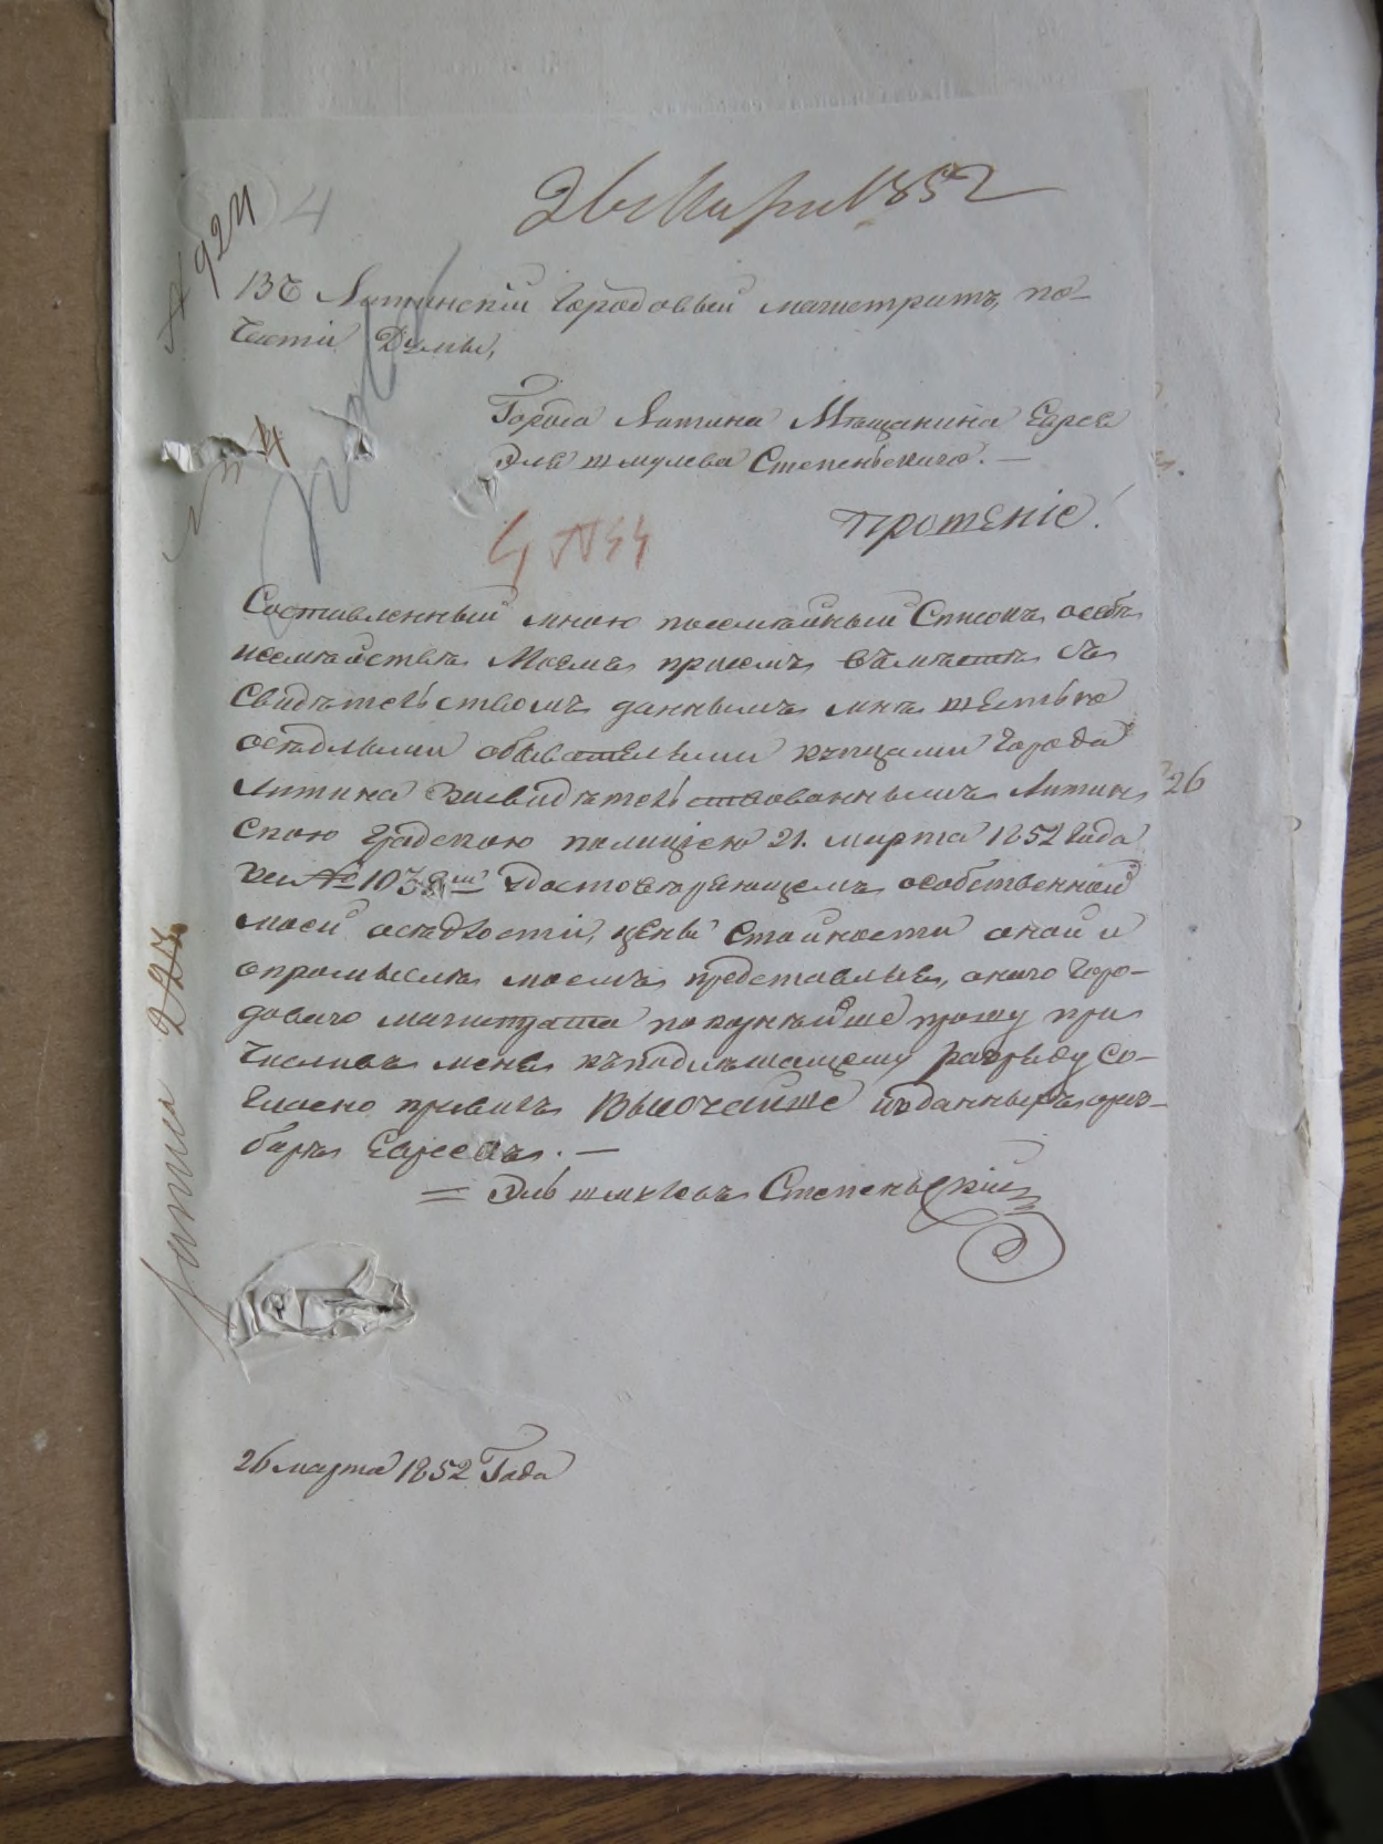 26 Марта 1852
№ 924
4
Въ Литинскій Городовый магистратъ, по-
части Думы,
Города Литина Мещанина Еврея
Эля шмулева Степеньского. —
№ 4
Прошеніе!
4 № 44
Составленный мною посемейный Списокъ, о себѣ
исемѣйствѣ Моемъ присемъ вѣместѣ съ
Свидѣтельствомъ даннымъ мнѣ шестью
осѣдлыми обывателями купцами города
Литина Засвидѣтельствованнымъ Литин 26
скою Градскою полиціею 21. марта 1852 Года
За № 1038 Удостоверяющемъ особственной
моей осѣдлости, цены Стоимости оной и
опромыслѣ моемъ представляя, оного Горо-
доваго магистрата покорнѣйше прошу при
числить меня къподлежащему разряду Со-
гласно правилъ Высочайше изданныхъ ораз-
борѣ Евреевъ. —
= Эль шмулевъ Степеньскій
26 марта 1852 Года